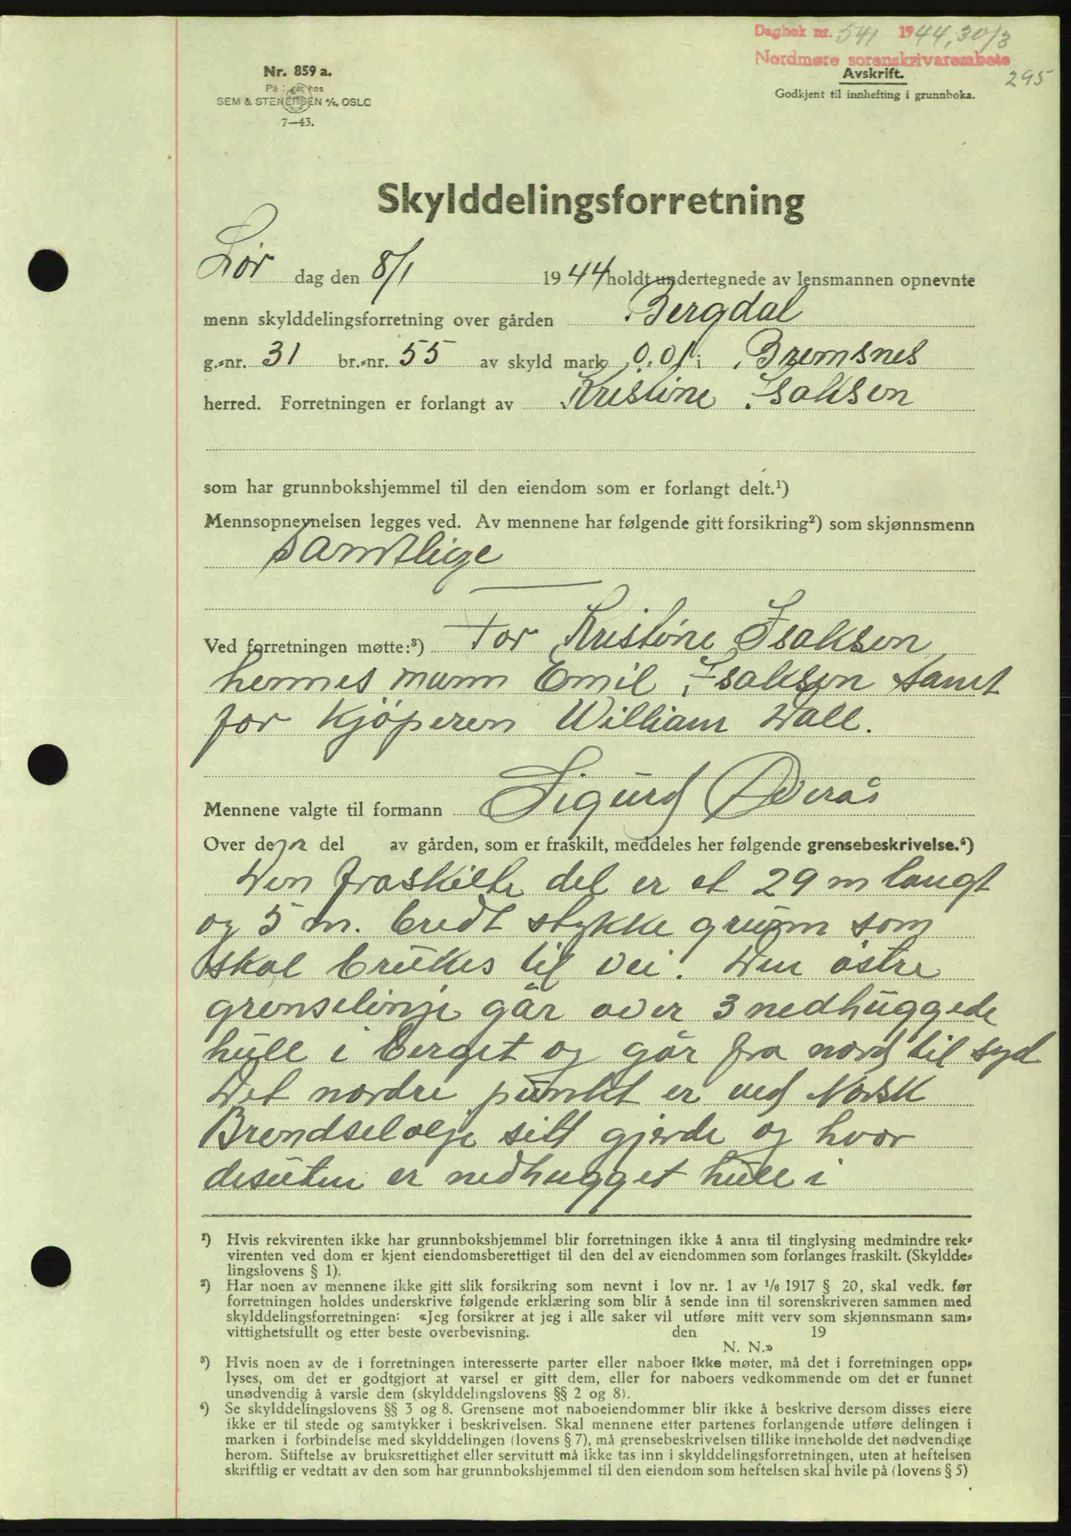 Dagbok nr. 541 1944, 30/3
Nordmøre sorenskrivarembete
295
Nr. 859 a.
SEM & STENERSEN A/S, OSLO
7—43.
Avskrift.
Godkjent til innhefting i grunnboka.
Skylddelingsforretning
Lør dag den 8/1 1944 holdt undertegnede av lensmannen opnevnte
menn skylddelingsforretning over gården Bergdal
g.-nr. 31 br.-nr. 55 av skyld mark 0.01 i Bremsnes
herred. Forretningen er forlangt av Kristine Isaksen
som har grunnbokshjemmel til den eiendom som er forlangt delt.¹)
Mennsopnevnelsen legges ved. Av mennene har følgende gitt forsikring²) som skjønnsmenn
Samtlige
Ved forretningen møtte:³) For Kristine Isaksen
hennes mann Emil Isaksen samt
for kjöperen William Wall.
Mennene valgte til formann Sigurd Øverås
Over den del av gården, som er fraskilt, meddeles her følgende grensebeskrivelse.⁴)
Den fraskilte del er et 29 m langt
og 5 m. bredt stykke grunn som
skal brukes til vei. Den östre
grenselinje går over 3 nedhuggede
hull i berget og går fra nord til syd
Det nordre punkt er ved Norsk
Brendselolje sitt gjerde og hvor
desuten er nedhugget hull i
¹) Hvis rekvirenten ikke har grunnbokshjemmel blir forretningen ikke å anta til tinglysing medmindre rek-
virenten ved dom er kjent eiendomsberettiget til den del av eiendommen som forlanges fraskilt. (Skyldde-
lingslovens § 1).
²) Har noen av mennene ikke gitt slik forsikring som nevnt i lov nr. 1 av 1/6 1917 § 20, skal vedk. før
forretningen holdes underskrive følgende erklæring som blir å sende inn til sorenskriveren sammen med
skylddelingsforretningen: «Jeg forsikrer at jeg i alle saker vil utføre mitt verv som skjønnsmann sam-
vittighetsfullt og etter beste overbevisning. den 19
N. N.»
³) Hvis noen av de i forretningen interesserte parter eller naboer ikke møter, må det i forretningen opp-
lyses, om det er godtgjort at varsel er gitt dem, eller for naboers vedkommende om det er funnet
unødvendig å varsle dem (skylddelingslovens §§ 2 og 8).
⁴) Se skylddelingslovens §§ 3 og 8. Grensene mot naboeiendommer blir ikke å beskrive dersom disses eiere
ikke er til stede og samtykker i beskrivelsen. Skal mennene etter partenes forlangende utføre delingen i
marken i forbindelse med skylddelingen (lovens § 7), må grensebeskrivelsen tillike inneholde det nødvendige
herom. Stiftelse av bruksrettighet eller servitutt må ikke tas inn i skylddelingsforretningen, uten at heftelsen
skriftlig er vedtatt av den som har grunnbokshjemmel til den eiendom som heftelsen skal hvile på (lovens § 5)